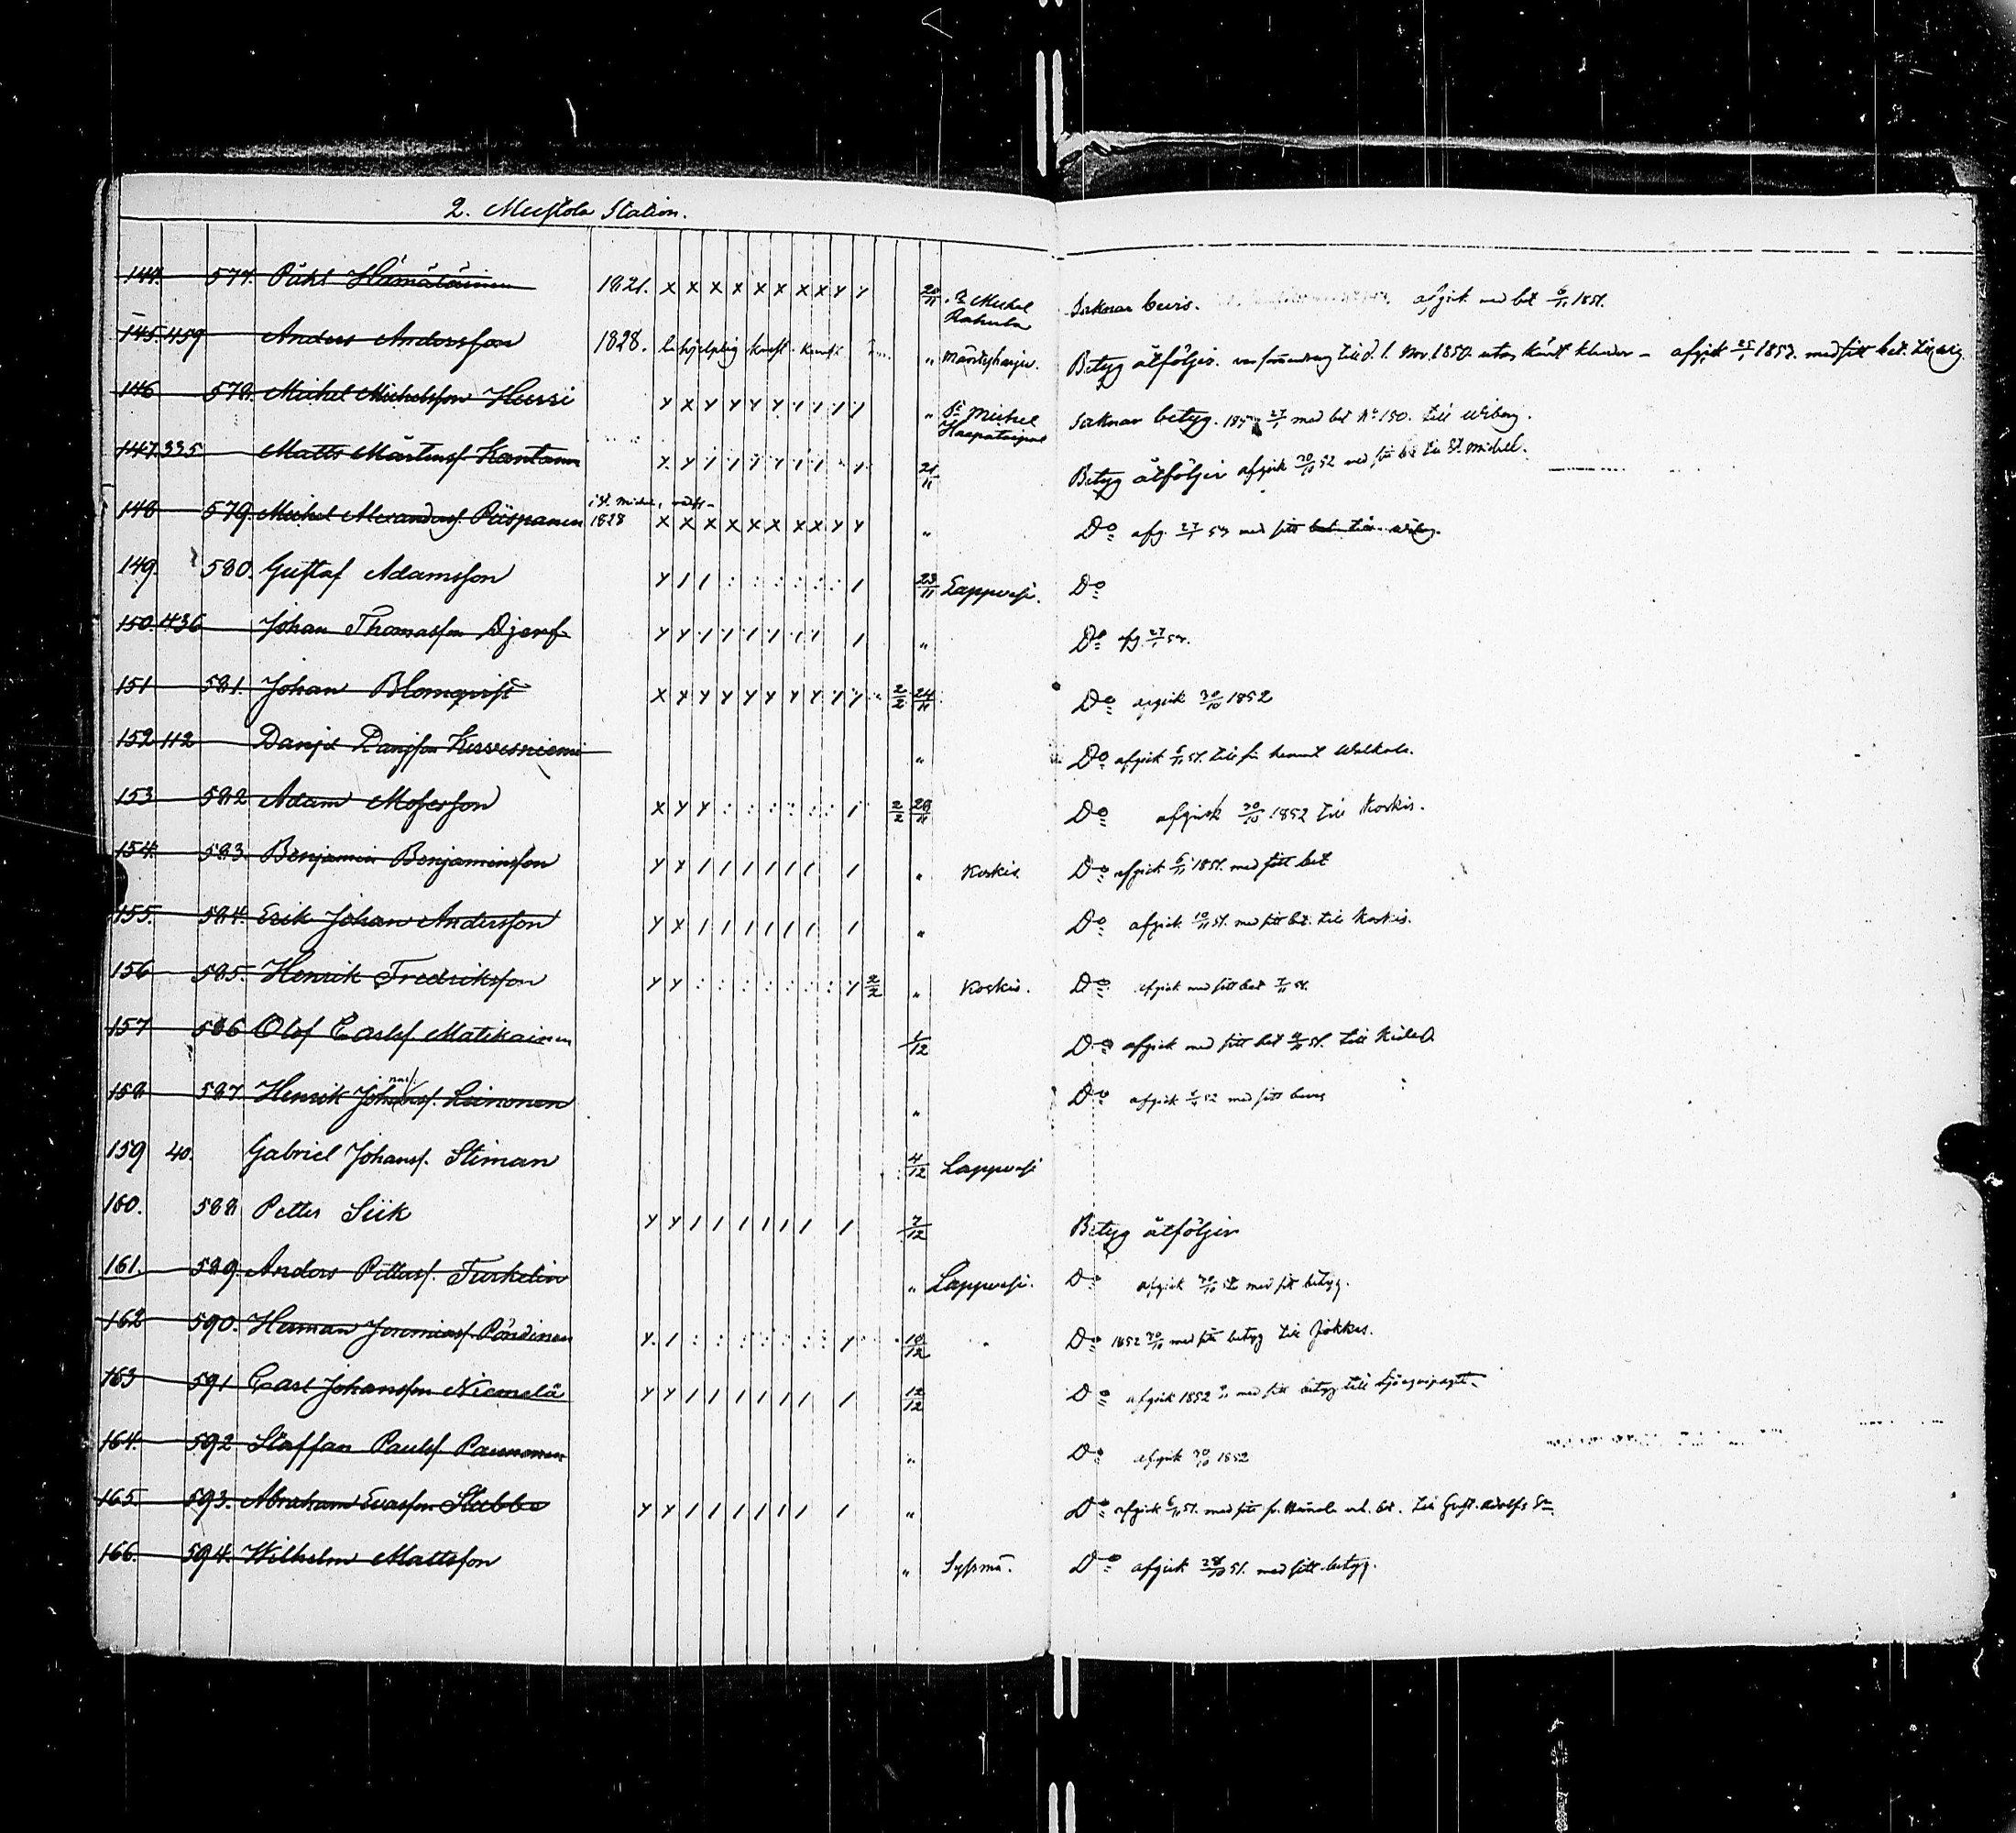 2. Mustola Station.
144. 577. Påhl Hämäläinen 1821. x x x x x x x x y y 20/11 St Michel Saknar bevis. afgick med bet 6/11 1851.
Rahula
145. 459 Anders Andersson 1828. " Mäntyharju. Betyg åtföljer. till d. 1. Nov. 1850. afgick 25/1 1853. med sitt bet.
146 578. Michel Michelsson Hussi y x y y y y y y y y " St Michel Saknar betyg. 27/1 med bet No 150. till Wiborg.
Haapataipal
147. 335 Matts Mårtensf. Kantanen 21/11 Betyg åtföljer afgick 30/10 52 med sitt bet till St. Michel.
148 579. Michel Alexandersf. Piispanen 1828 x x x x x x x x y y " Do afg. 27/1 med sitt bet till Wiborg.
149. 580. Gustaf Adamsson y / / : : : : : : / 23/11 Lappvesi. Do
150. 436 Johan Thomasson Djerf " Do afg. 27/1
151 581. Johan Blomqvist x y y y y y y y y y 2/2 24/11 Do afgick 30/10 1852
152 112 Danjel Danjsson Kurvisniemi " Do afgick 6/11 51. till
153 582 Adam Mosesson x y y : : : : : : / 2/2 28/11 Do afgick 30/10 1852 till Koskis.
154. 583. Benjamin Benjaminsson y x / / / / / / / " Koskis Do afgick 6/11 1851. med sitt bet
155. 584. Erik Johan Andersson y x / / / / / / / " Do afgick 10/11 51. med sitt bet. till Koskis.
156 585. Henrik Fredriksson y y : : : : : : : y 2/2 " Koskis. Do afgick med sitt bet 7/11 51.
157 586 Olof Carlsf. Matikainen 1/12 Do afgick med sitt bet 51. till
158 587. Henrik Johansf. Leinonen " Do afgick 52 med sitt bevis
159 40. Gabriel Johansf. Stiman 4/12 Lappvesi
160. 588 Petter Siik y y / / / / / / / 7/12 Betyg åtföljer
161. 589. Anders Pettersf. Turkelin " Lappvesi. Do afgick 30/10 52 med sitt betyg.
162 590. Herman Jeremiasf. Pöndinen y. / : : : : : : : y 10/12 " Do 1852 30/10 med sitt betyg till Jokkas.
163 591 Carl Johansson Niemelä y y / / / / / / / 12/12 Do afgick 1852 med sitt betyg till
164. 592 Staffan Paulsf. Paunonen " Do afgick 30/10 1852
165. 593. Abraham Evasson Stubbe y y / / / / / / / " Do afgick 6/11 51. med sitt bet. till Gust. Adolfs Sn
166. 594. Wilhelm Mattsson " Sysmä. Do afgick 28/10 51. med sitt betyg.